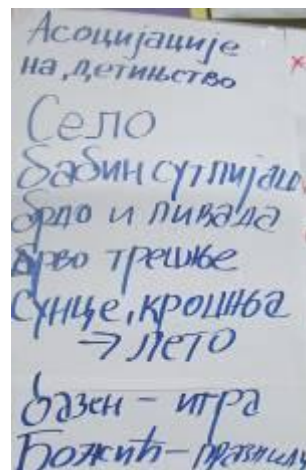 Асоцијације
на детињство
Село
бабин сутлијаш
брдо и ливада
дрво трешње
Сунце, крошња
→ лето
базен - игра
Божић - празници